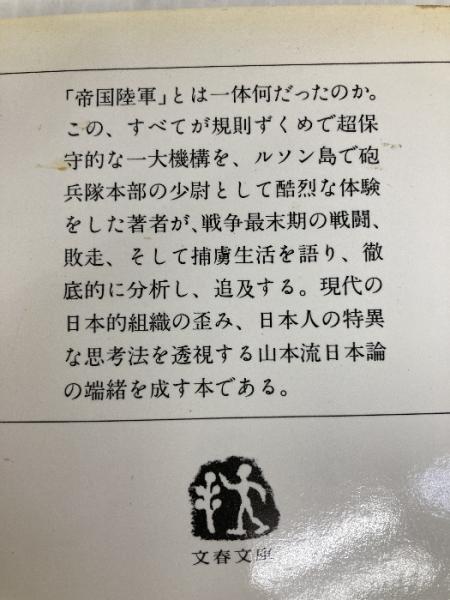 「帝国陸軍」とは一体何だったのか。
この、すべてが規則ずくめで超保
守的な一大機構を、ルソン島で砲
兵隊本部の少尉として酷烈な体験
をした著者が、戦争最末期の戦闘、
敗走、そして捕虜生活を語り、徹
底的に分析し、追及する。現代の
日本的組織の歪み、日本人の特異
な思考法を透視する山本流日本論
の端緒を成す本である。
文春文庫